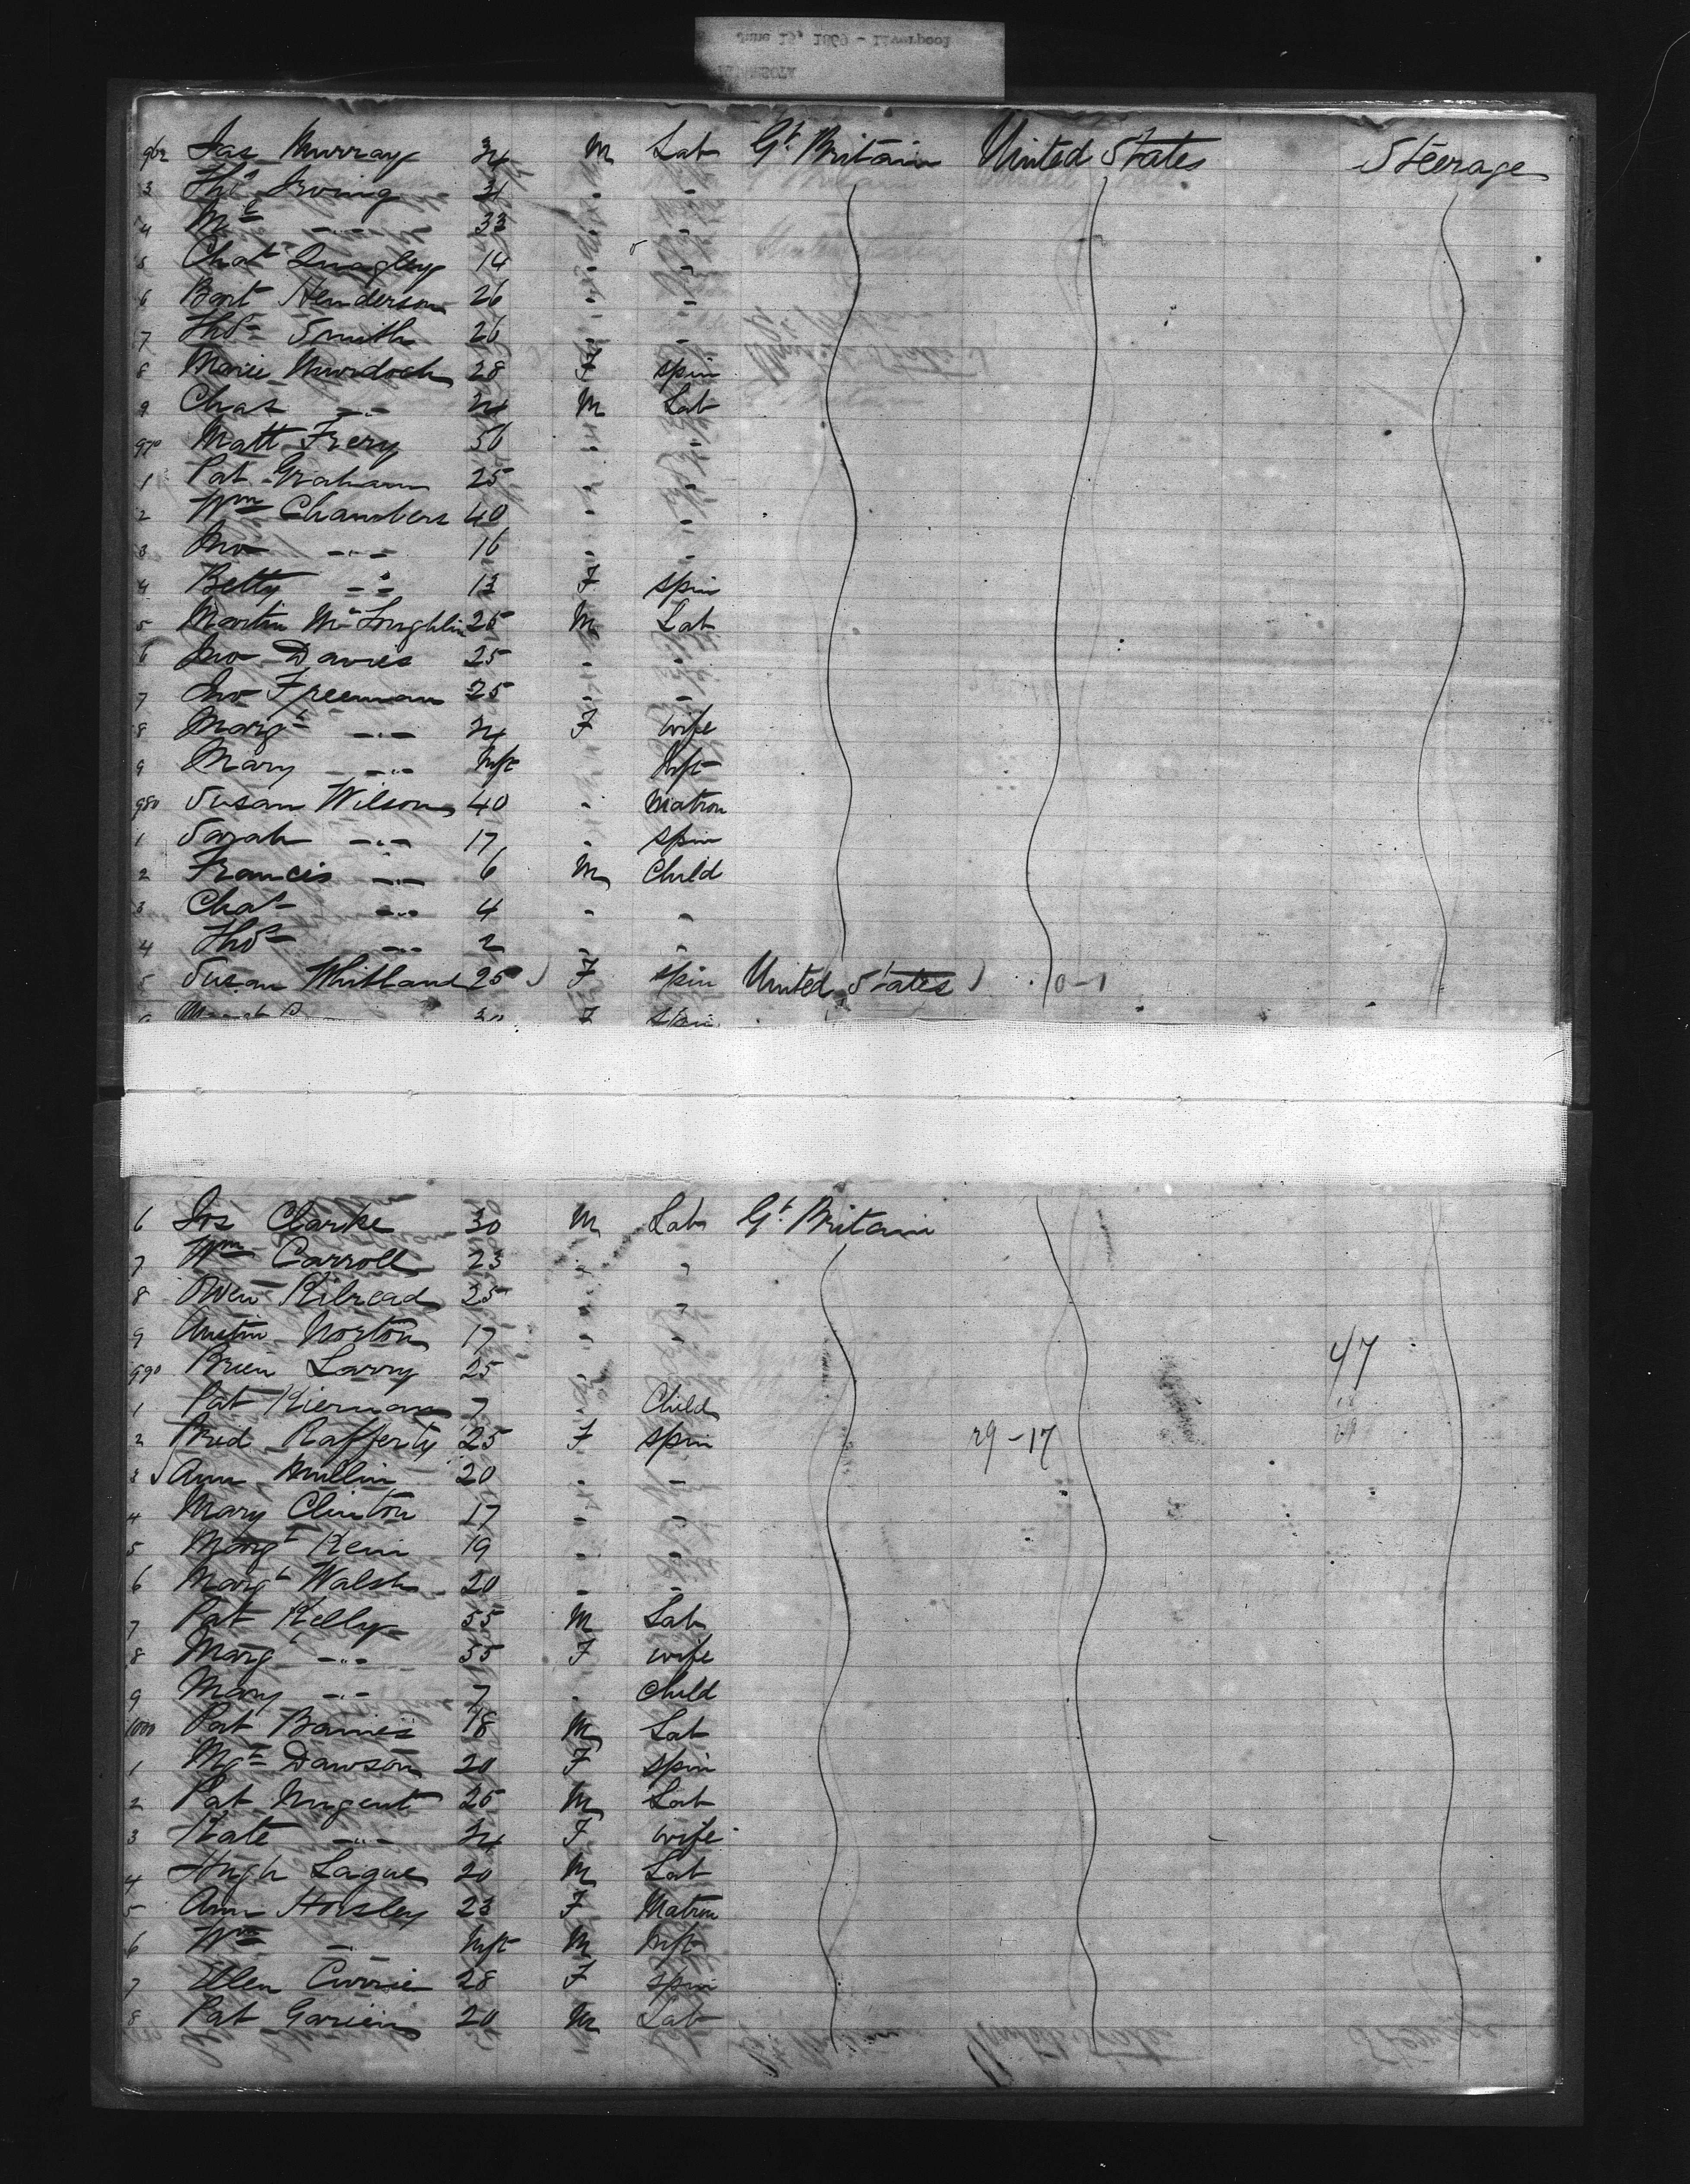 June 15, 1869 - Liverpool
962 Jas Murray 24 M Lab Gt Britain United States Steerage
3 Thos Irving 21 " "
4 Mt -"- 33 " "
5 Chat Quagley 14 " "
6 Bart Henderson 26 " "
7 Thos Smith 26 " "
8 Marie Murdoch 28 F spin
9 Chas -"- 24 M Lab
970 Matt Frery 50 " "
1 Pat Graham 25 " "
2 Wm Chambers 40 " "
3 Jno -"- 16 " "
4 Betty -"- 13 F spin
5 Martin McLoughlin 25 M Lab
6 Jno Davies 25 " "
7 Jno Freeman 25 " "
8 Margt -"- 24 F wife
9 Mary -"- Inft Inft
980 Susan Wilson 40 " Matron
1 Sarah -"- 17 " spin
2 Francis -"- 6 M Child
3 Chas -"- 4 " "
4 Thos -"- 2 " "
5 Susan Whitland 25 F spin United States 0-1
F spin
6 Jos Clarke 30 M Lab Gt Britain
7 Wm Carroll 23 " "
8 Owen Kilread 25 " "
9 Austin Norton 17 " " 47
990 Brien Larry 25 "
1 Pat Kiernan 7 " Child
2 Brid Rafferty 25 F spin 29-17
3 Ann Mullin 20 " "
4 Mary Clinton 17 " "
5 Margt Keni 19 " "
6 Margt Walsh 20 " "
7 Pat Kelly 55 M Lab
8 Marg -"- 55 F wife
9 Mary -"- 7 " child
1000 Pat Barnes 18 M Lab
1 Mgt Dawson 20 F spin
2 Pat Nugent 25 M Lab
3 Kate -"- 24 F wife
4 Hugh Lague 20 M Lab
5 Ann Horsley 23 F Matron
6 Wm - Inft M Inft
7 Ellen Currie 28 F spin
8 Pat 20 M Lab